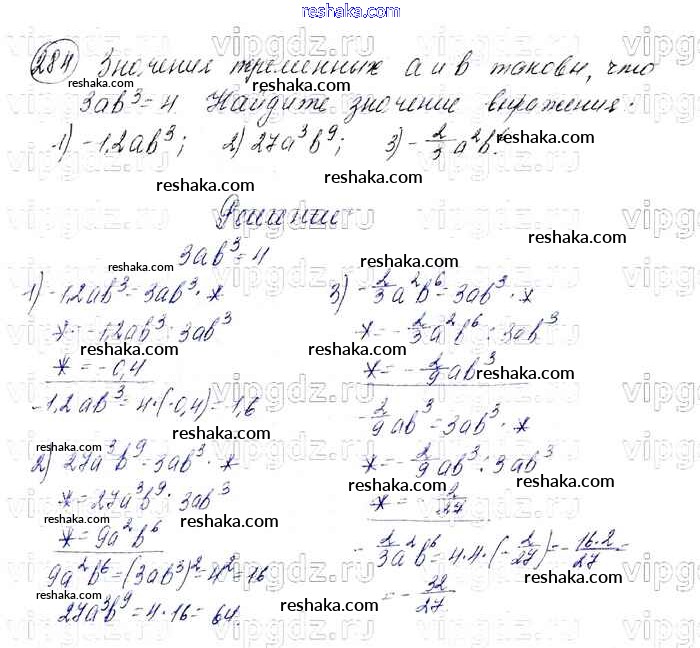 www.reshaka.com
284 Значения переменных a и b таковы, что
3ab³ = 4. Найдите значение выражения:
1) -1,2ab³; 2) 27a³b⁹; 3) -2/3 a²b⁶.
Решение
3ab³ = 4
1) -1,2ab³ = 3ab³ · *
* = -1,2ab³ : 3ab³
* = -0,4
-1,2ab³ = 4 · (-0,4) = -1,6
2) 27a³b⁹ = 3ab³ · *
* = 27a³b⁹ : 3ab³
* = 9a²b⁶
9a²b⁶ = (3ab³)² = 4² = 16
27a³b⁹ = 4 · 16 = 64.
3) -2/3 a²b⁶ = 3ab³ · *
* = -2/3 a²b⁶ : 3ab³
* = -2/9 ab³
-2/9 ab³ = 3ab³ · *
* = -2/9 ab³ : 3ab³
* = -2/27
-2/3 a²b⁶ = 4 · 4 · (-2/27) = -16·2/27 =
= -32/27